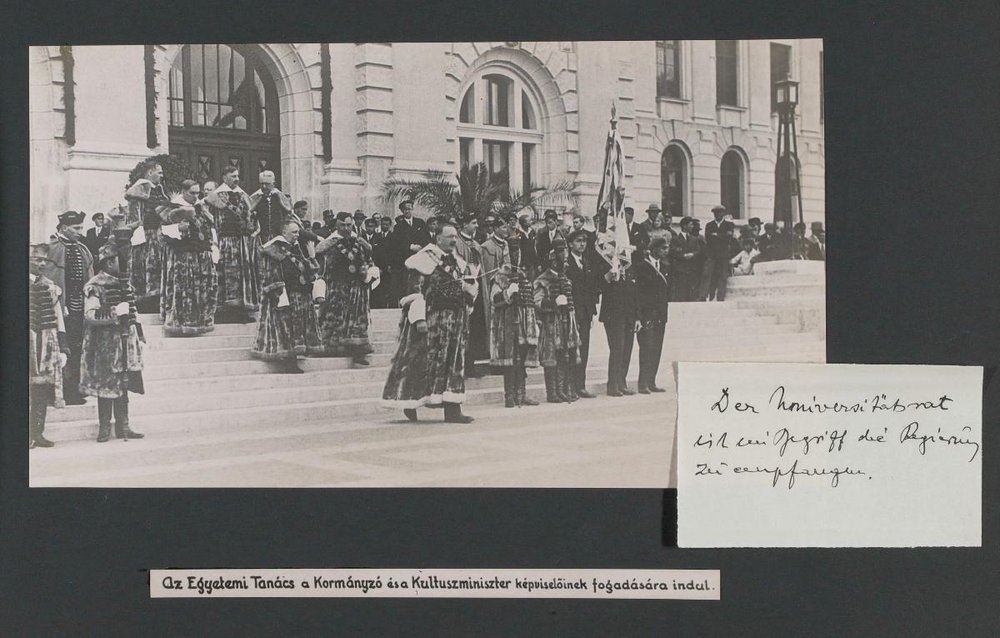 Der Universitätsrat
ist im Begriff die Regierung
zu empfangen.
Az Egyetemi Tanács a Kormányzó és a Kultuszminiszter képviselőinek fogadására indul.